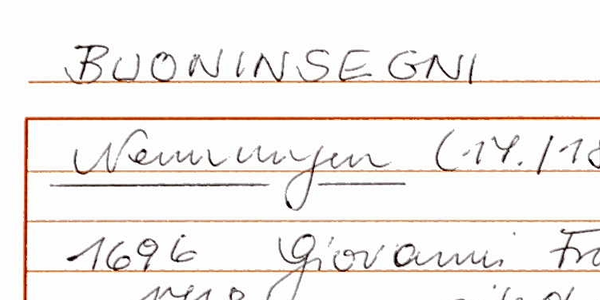 BUONINSEGNI
Nennungen (17./18
1696 Giovanni Fr